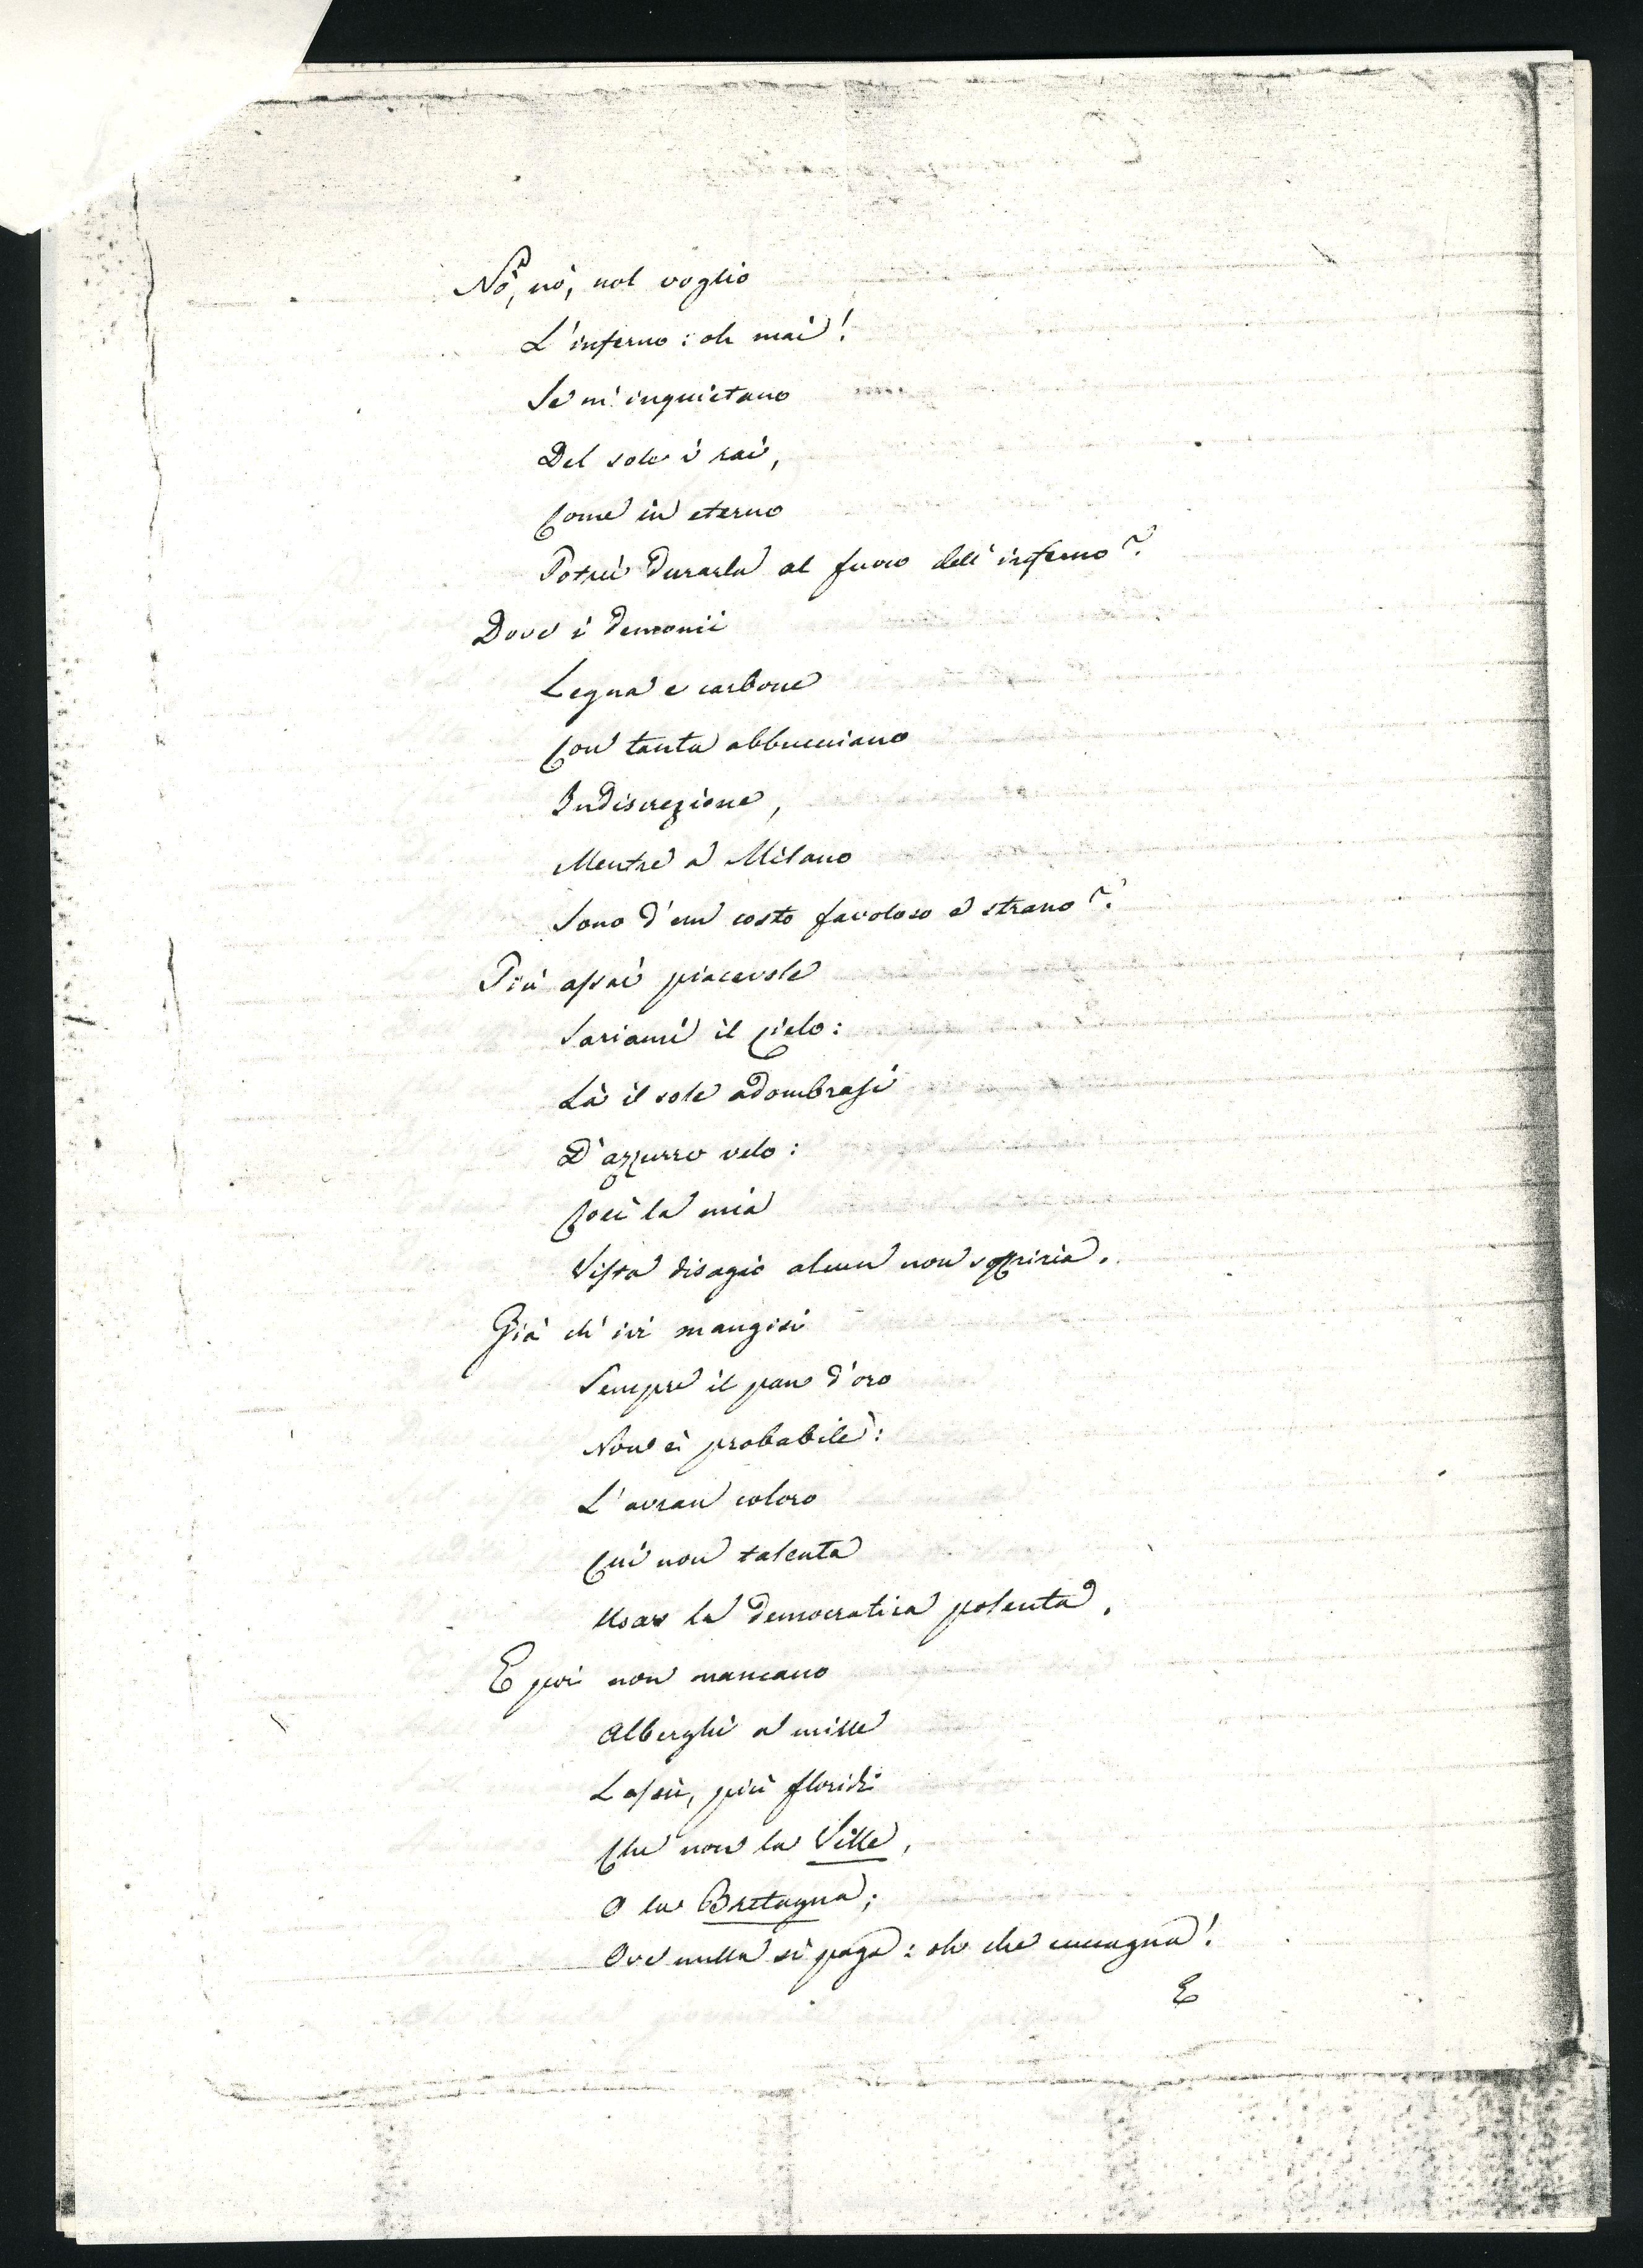 Nò, nò, nol voglio
L'inferno: oh mai!
Se m'inquietano
Del sole i rai,
Come in eterno
Potrei durarla al fuoco dell'inferno?
Dove i demonii
Legna e carbone
Con tanta abbruciano
Indiscrezione,
Mentre a Milano
Sono d'un costo favoloso e strano?
Più assai piacevole
Sariami il Cielo:
Là il sole adombrasi
D'azzurro velo:
Così la mia
Vista disagio alcun non soffriria.
Già ch'ivi mangisi
Sempre il pane d'oro
Non è probabile:
L'avran coloro
Cui non talenta
Usar la democratica polenta.
E poi non mancano
Alberghi a mille
Lassù, più floridi
Che non la Ville,
O la Bretagna;
Ove nulla si paga: oh che cuccagna!
E